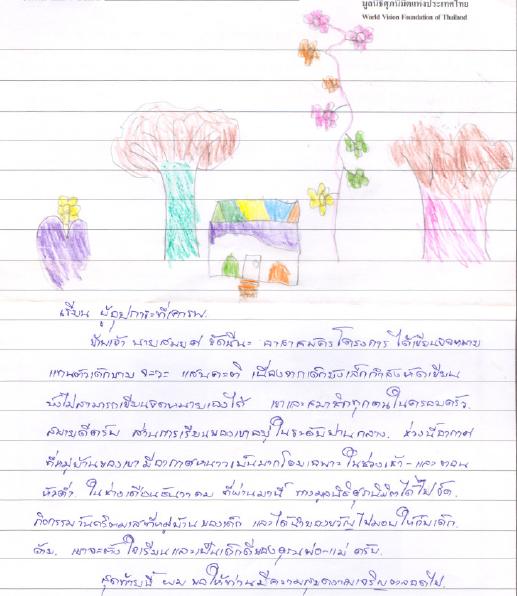 มูลนิธิศุภนิมิตแห่งประเทศไทย
World Vision Foundation of Thailand
เรียน ผู้อุปการะที่เคารพ
ข้าพเจ้า นาย อาสาสมัครโครงการ ได้เขียนจดหมาย
แทนตัวเด็กชาย เนื่องจากเด็กยังเล็กกำลังหัดเขียน
ยังไม่สามารถเขียนจดหมายเองได้ เขาและสมาชิกทุกคนในครอบครัว
สบายดีครับ ส่วนการเรียนของเขาอยู่ในระดับปานกลาง. ช่วงนี้อากาศ
ที่หมู่บ้านของเขามีอากาศหนาวเย็นมากโดยเฉพาะในช่วงเช้า-และตอน
หัวค่ำ ในช่วงเดือนธันวาคม ที่ผ่านมานี้ ทางมูลนิธิศุภนิมิตได้ไปจัด.
กิจกรรมวันคริสต์มาสที่หมู่บ้านของเด็ก และได้นำของขวัญไปมอบให้กับเด็ก.
ด้วย. เขาจะตั้งใจเรียนและเป็นเด็กดีของคุณพ่อ-แม่ ครับ.
สุดท้ายนี้ ผมขอให้ท่านมีความสุขความเจริญตลอดไป.